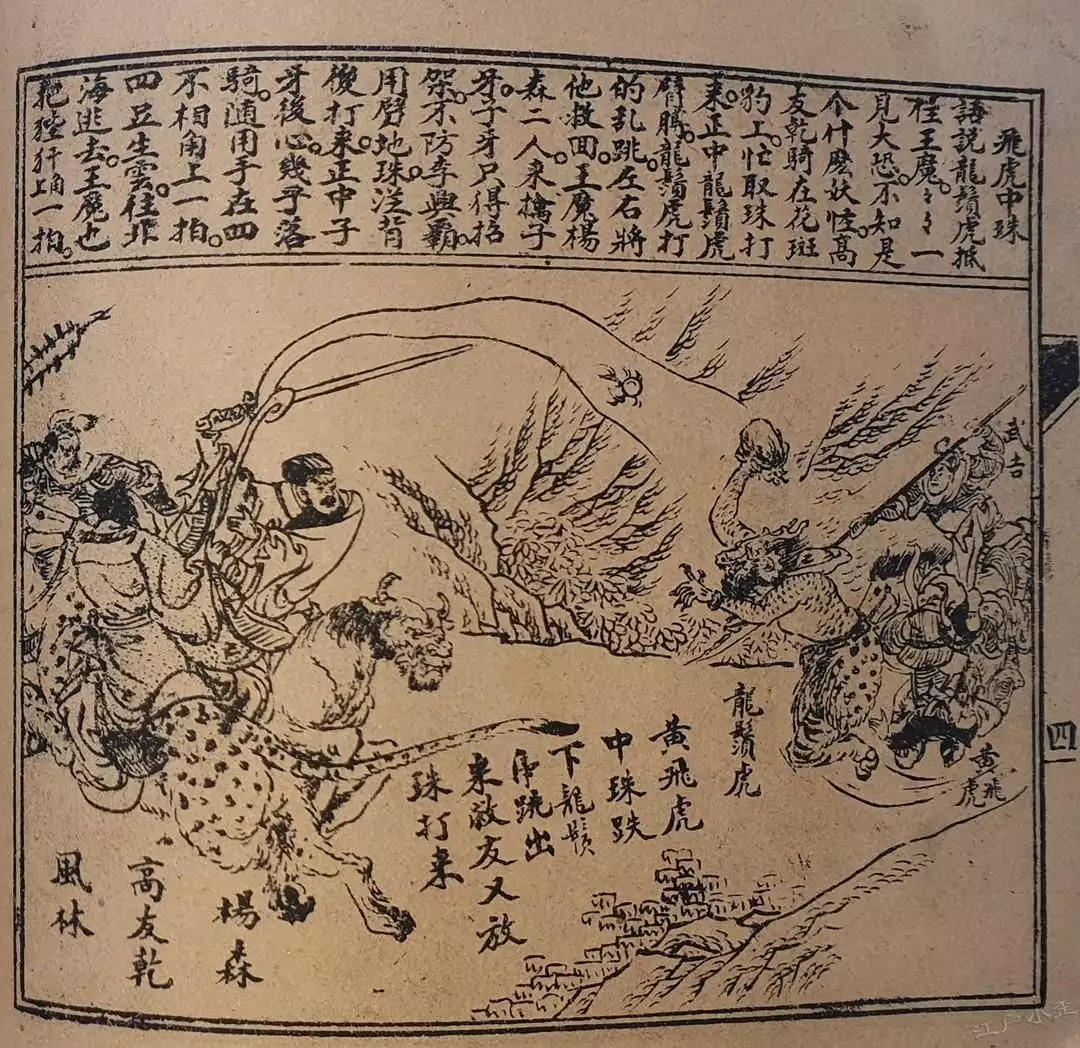 飛虎中珠
話說龍鬚虎抵
住王魔々々一
見大恐不知是
个什麽妖怪高
友乾騎在花斑
豹上忙取珠打
来正中龍鬚虎
臂膊龍鬚虎打
的乱跳左右將
他救囬王魔楊
森二人来擒子
牙子牙只得招
架不防李興霸
用劈地珠從背
後打来正中子
牙後心幾乎落
騎随用手在四
不相角上一拍
四足生雲往北
海逃去王魔也
把狴犴角上一拍
武吉
黄飛虎
龍鬚虎
黄飛虎
中珠跌
下龍鬚
虎跳出
来敵友又放
珠打来
楊森
高友乾
風林
四
江户小歪